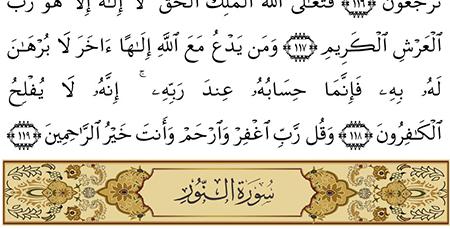 تُرْجَعُونَ ﴿١١٥﴾ فَتَعَالَى اللَّهُ الْمَلِكُ الْحَقُّ ۖ لَا إِلَٰهَ إِلَّا هُوَ رَبُّ
الْعَرْشِ الْكَرِيمِ ﴿١١٦﴾ وَمَن يَدْعُ مَعَ اللَّهِ إِلَٰهًا ءَاخَرَ لَا بُرْهَٰنَ
لَهُۥ بِهِۦ فَإِنَّمَا حِسَابُهُۥ عِندَ رَبِّهِۦٓ ۚ إِنَّهُۥ لَا يُفْلِحُ
الْكَٰفِرُونَ ﴿١١٧﴾ وَقُل رَّبِّ اغْفِرْ وَارْحَمْ وَأَنتَ خَيْرُ الرَّٰحِمِينَ ﴿١١٨﴾
سُورَةُ النُّورِ